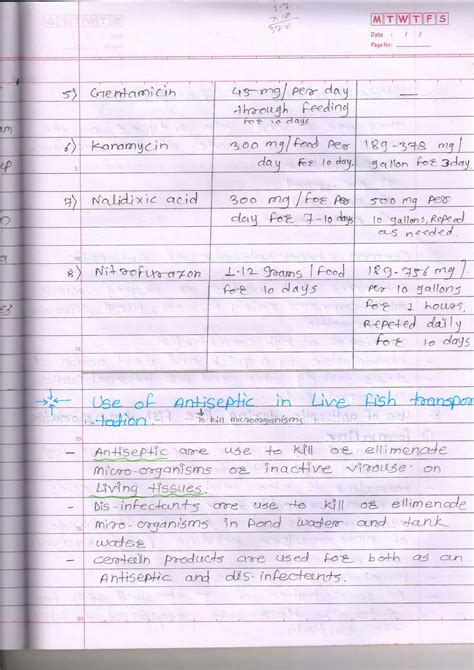 M T W T F S
Date : / /
Page No:
5) Gentamicin 45 mg/ per day —
through feeding
for 10 days
6) Kanamycin 300 mg/food per 189-378 mg/
day for 10 day. gallon for 3day
7) Nalidixic acid 300 mg /for per 500 mg per
day for 7-10 days 10 gallons, Repeat
as needed.
8) Nitrofurazon 1.12 grams/food 189-756 mg/.
for 10 days Per 10 gallons
for 1 hours,
Repeted daily
for 10 days
Use of Antiseptic in Live fish transpor
-tation. To kill microorganisms
- Antiseptic are use to kill or ellimenate
micro-organisms or inactive virouse on
Living tissues.
- Dis-infectants are use to kill or ellimenate
miro-organisms in Pond water and tank
water
- certain products are used for both as an
Antiseptic and dis-infectants.